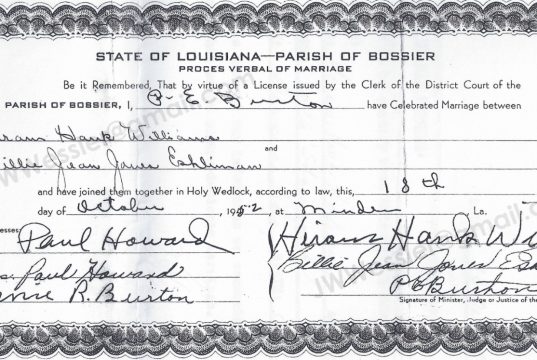 STATE OF LOUISIANA—PARISH OF BOSSIER
PROCES VERBAL OF MARRIAGE
Be it Remembered, That by virtue of a License issued by the Clerk of the District Court of the
PARISH OF BOSSIER, I, P. E. Burton have Celebrated Marriage between
iram Hank Williams
and
illie Jean Jones Eshliman
and have joined them together in Holy Wedlock, according to law, this, 18th
day of October, 1952, at Minden, La.
esses:
Paul Howard
Hiram Hank Wi
Paul Howard
Billie Jean Jones Es
R. Burton
P E Burton
Signature of Minister, Judge or Justice of the